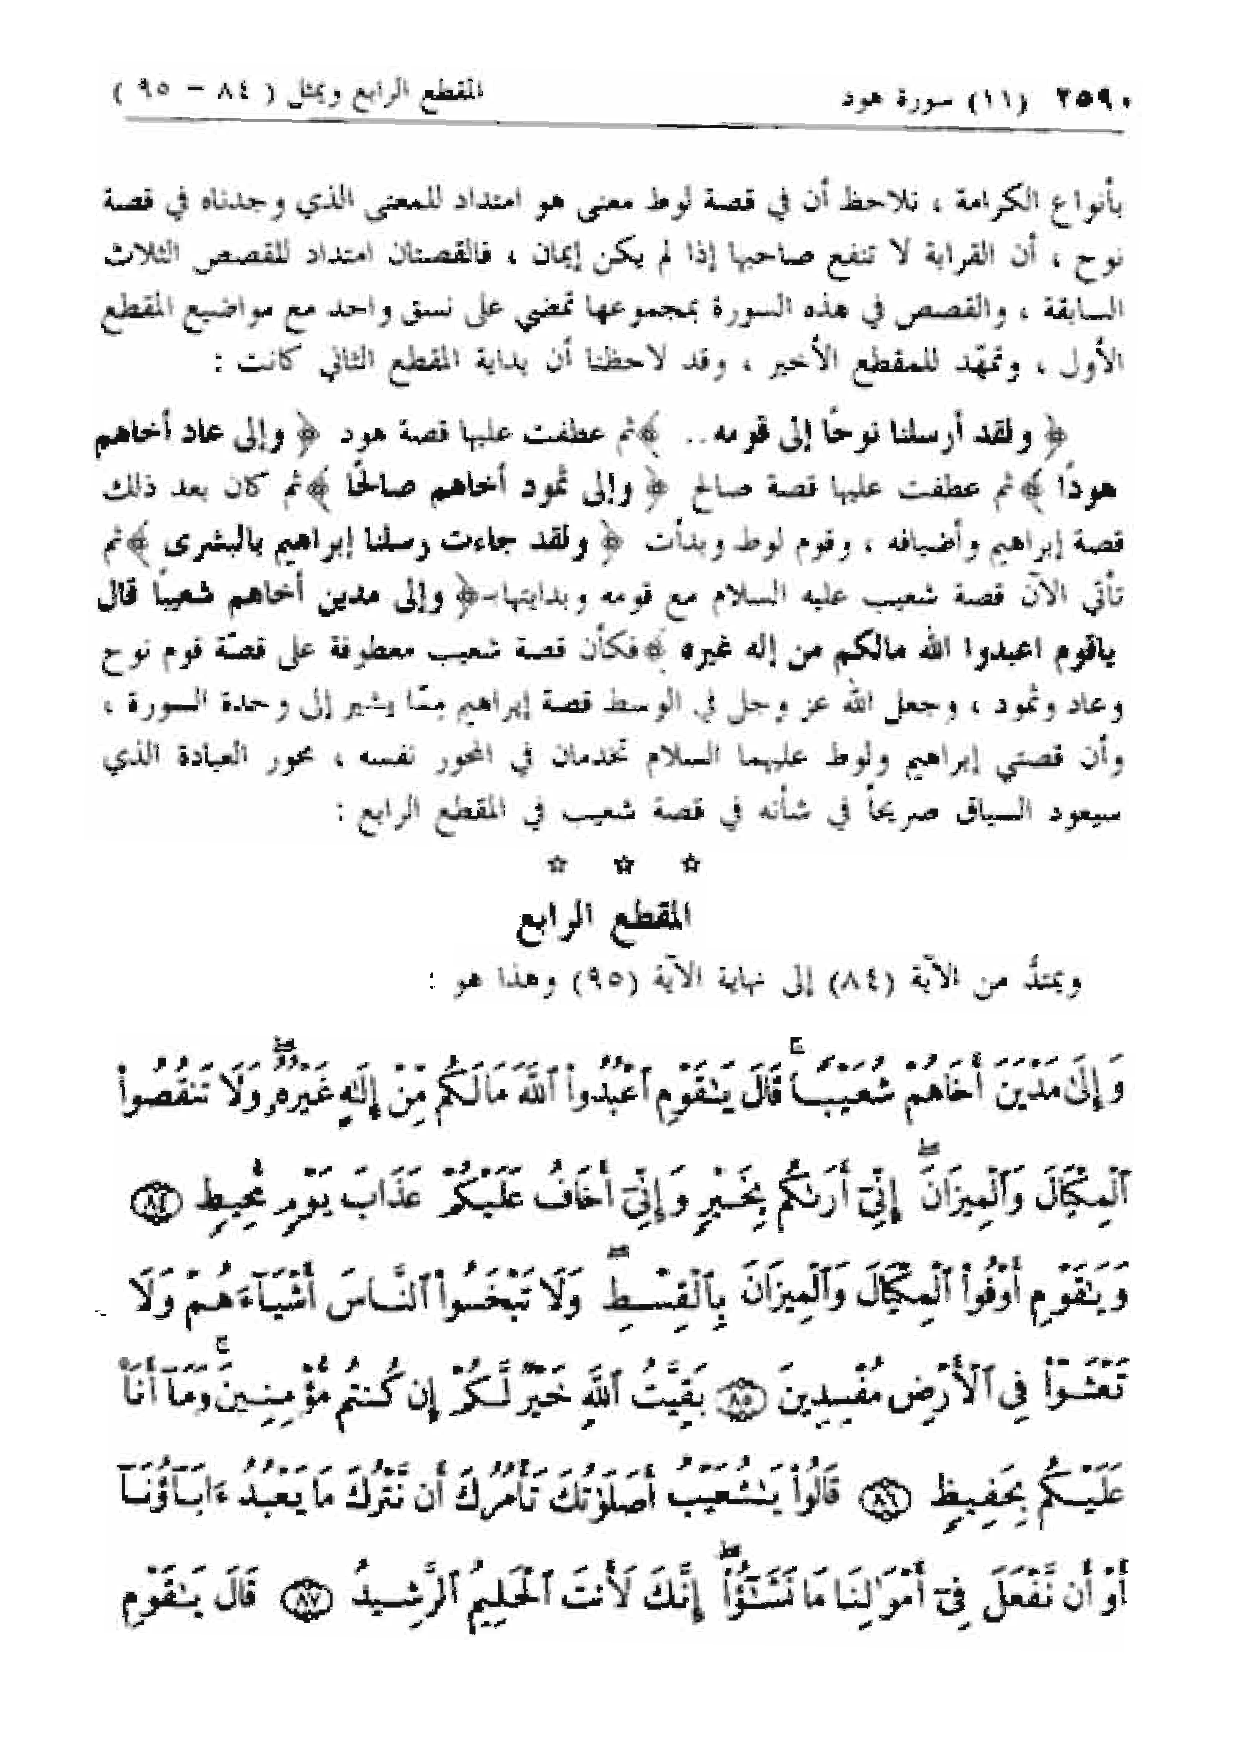 ٢٥٩٠ (١١) سورة هود المقطع الرابع ويمثل ( ٨٤ – ٩٥ )
بأنواع الكرامة ، نلاحظ أن في قصة لوط معنى هو امتداد للمعنى الذي وجدناه في قصة
نوح ، أن القرابة لا تنفع صاحبها إذا لم يكن إيمان ، فالقصتان امتداد للقصص الثلاث
السابقة ، والقصص في هذه السورة بمجموعها تمضي على نسق واحد مع مواضيع المقطع
الأول ، وتمهّد للمقطع الأخير ، وقد لاحظنا أن بداية المقطع الثاني كانت :
﴿ ولقد أرسلنا نوحًا إلى قومه .. ﴾ ثم عطفت عليها قصة هود ﴿ وإلى عاد أخاهم
هودًا ﴾ ثم عطفت عليها قصة صالح ﴿ وإلى ثمود أخاهم صالحًا ﴾ ثم كان بعد ذلك
قصة إبراهيم وأضيافه ، وقوم لوط وبدأت ﴿ ولقد جاءت رسلنا إبراهيم بالبشرى ﴾ ثم
تأتي الآن قصة شعيب عليه السلام مع قومه وبدايتها – ﴿ وإلى مدين أخاهم شعيبًا قال
ياقوم اعبدوا الله مالكم من إله غيره ﴾ فكأن قصة شعيب معطوفة على قصّة قوم نوح
وعاد وثمود ، وجعل الله عز وجل في الوسط قصة إبراهيم ممّا يشير إلى وحدة السورة ،
وأن قصتي إبراهيم ولوط عليهما السلام تخدمان في المحور نفسه ، محور العبادة الذي
سيعود السياق صريحاً في شأنه في قصة شعيب في المقطع الرابع :
☆ ☆ ☆
المقطع الرابع
ويمتدُّ من الآية (٨٤) إلى نهاية الآية (٩٥) وهذا هو :
وَإِلَىٰ مَدْيَنَ أَخَاهُمْ شُعَيْبًا ۚ قَالَ يَـٰقَوْمِ ٱعْبُدُوا۟ ٱللَّهَ مَا لَكُم مِّنْ إِلَـٰهٍ غَيْرُهُۥ ۖ وَلَا تَنقُصُوا۟
ٱلْمِكْيَالَ وَٱلْمِيزَانَ ۖ إِنِّىٓ أَرَىٰكُم بِخَيْرٍ وَإِنِّىٓ أَخَافُ عَلَيْكُمْ عَذَابَ يَوْمٍ مُّحِيطٍ ٨٤
وَيَـٰقَوْمِ أَوْفُوا۟ ٱلْمِكْيَالَ وَٱلْمِيزَانَ بِٱلْقِسْطِ ۖ وَلَا تَبْخَسُوا۟ ٱلنَّاسَ أَشْيَآءَهُمْ وَلَا
تَعْثَوْا۟ فِى ٱلْأَرْضِ مُفْسِدِينَ ٨٥ بَقِيَّتُ ٱللَّهِ خَيْرٌ لَّكُمْ إِن كُنتُم مُّؤْمِنِينَ ۚ وَمَآ أَنَا۠
عَلَيْكُم بِحَفِيظٍ ٨٦ قَالُوا۟ يَـٰشُعَيْبُ أَصَلَوٰتُكَ تَأْمُرُكَ أَن نَّتْرُكَ مَا يَعْبُدُ ءَابَآؤُنَآ
أَوْ أَن نَّفْعَلَ فِىٓ أَمْوَٰلِنَا مَا نَشَـٰٓؤُا۟ ۖ إِنَّكَ لَأَنتَ ٱلْحَلِيمُ ٱلرَّشِيدُ ٨٧ قَالَ يَـٰقَوْمِ